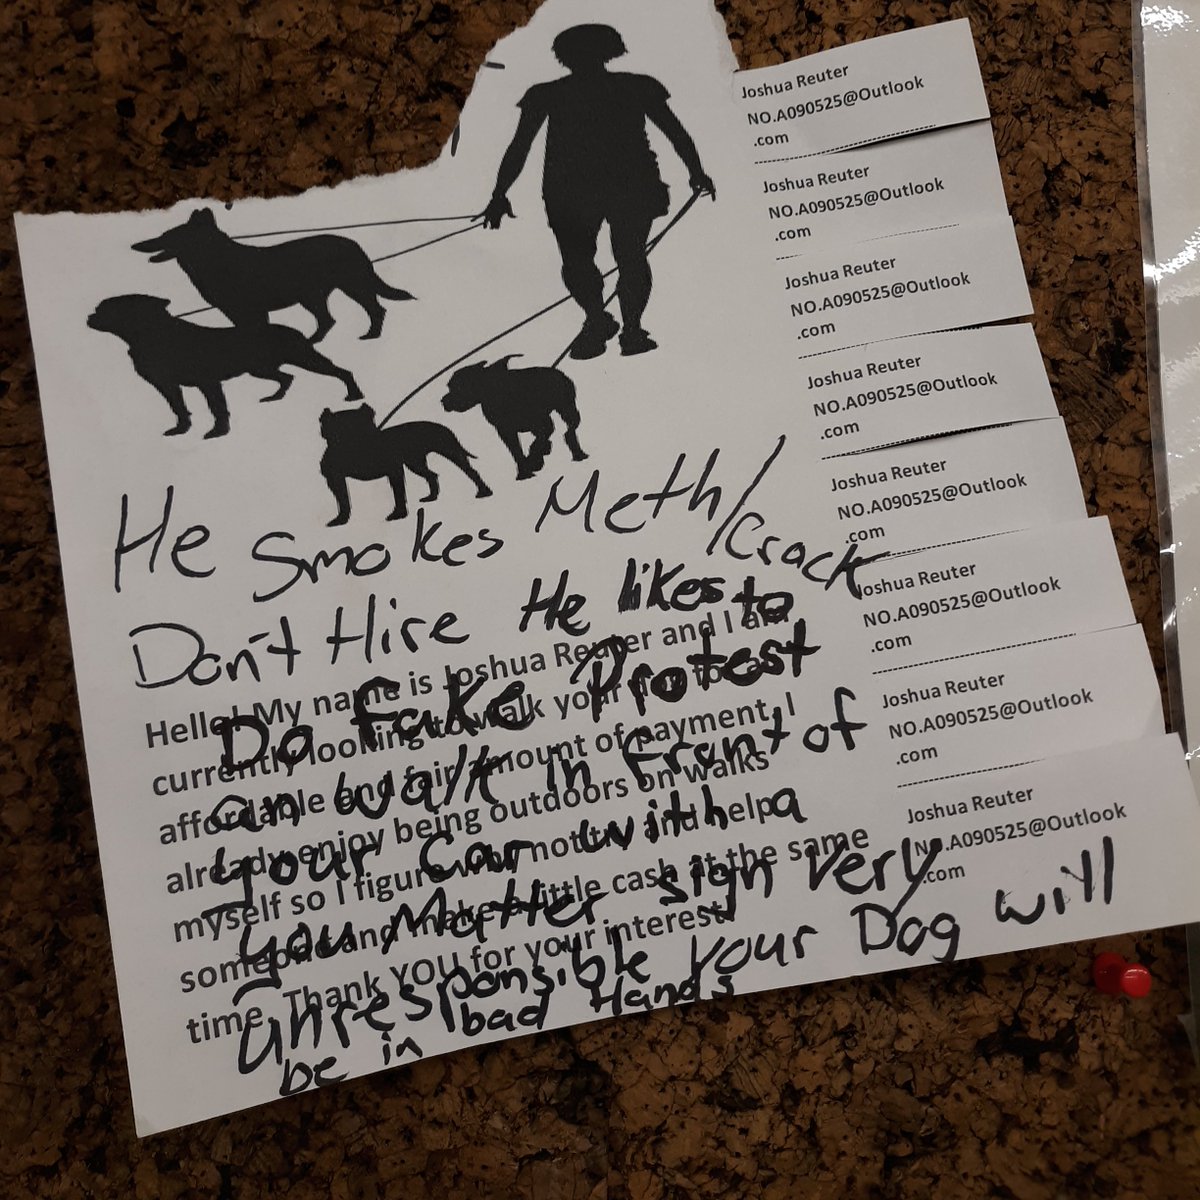 He Smokes Meth/Crack
Don't Hire He likes to
Do fake Protest
an walk in front of
your Car with a
you Matter sign very
unresponsible your Dog will
be in bad Hands
Hello! My name is Joshua Reuter and I am
currently looking to walk your for an
affordable and fair amount of payment, I
already enjoy being outdoors on walks
myself so I figure why not try and help
someone and make a little cash at the same
time. Thank you for your interest!
Joshua Reuter
NO.A090525@Outlook
.com
Joshua Reuter
NO.A090525@Outlook
.com
Joshua Reuter
NO.A090525@Outlook
.com
Joshua Reuter
NO.A090525@Outlook
.com
Joshua Reuter
NO.A090525@Outlook
.com
Joshua Reuter
NO.A090525@Outlook
.com
Joshua Reuter
NO.A090525@Outlook
.com
Joshua Reuter
NO.A090525@Outlook
.com